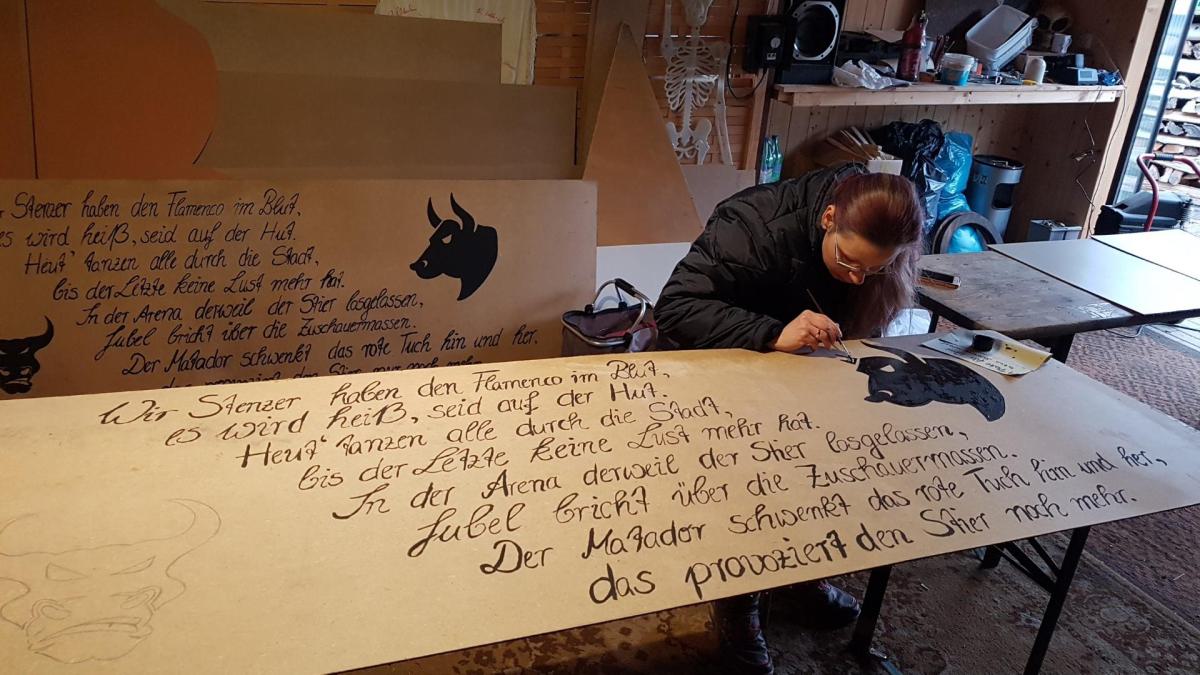 Stenzer haben den Flamenco im Blut,
es wird heiß, seid auf der Hut.
Heut' tanzen alle durch die Stadt,
bis der Letzte keine Lust mehr hat.
In der Arena derweil der Stier losgelassen,
Jubel bricht über die Zuschauermassen.
Der Matador schwenkt das rote Tuch hin und her.
Wir Stenzer haben den Flamenco im Blut,
es wird heiß, seid auf der Hut.
Heut' tanzen alle durch die Stadt,
bis der Letzte keine Lust mehr hat.
In der Arena derweil der Stier losgelassen,
Jubel bricht über die Zuschauermassen.
Der Matador schwenkt das rote Tuch hin und her,
das provoziert den Stier noch mehr.